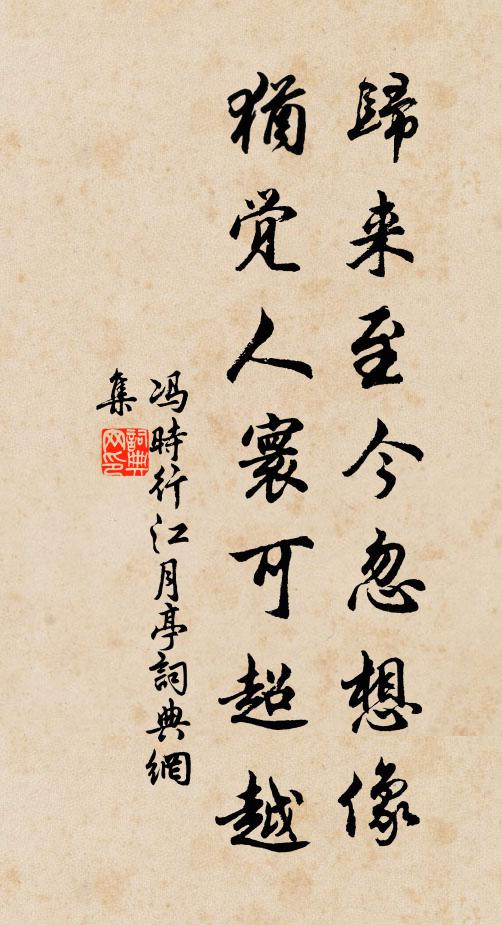 歸来至今忽想像
猶覚人寰可超越
冯時行江月亭詞典網
集
詞典
网印